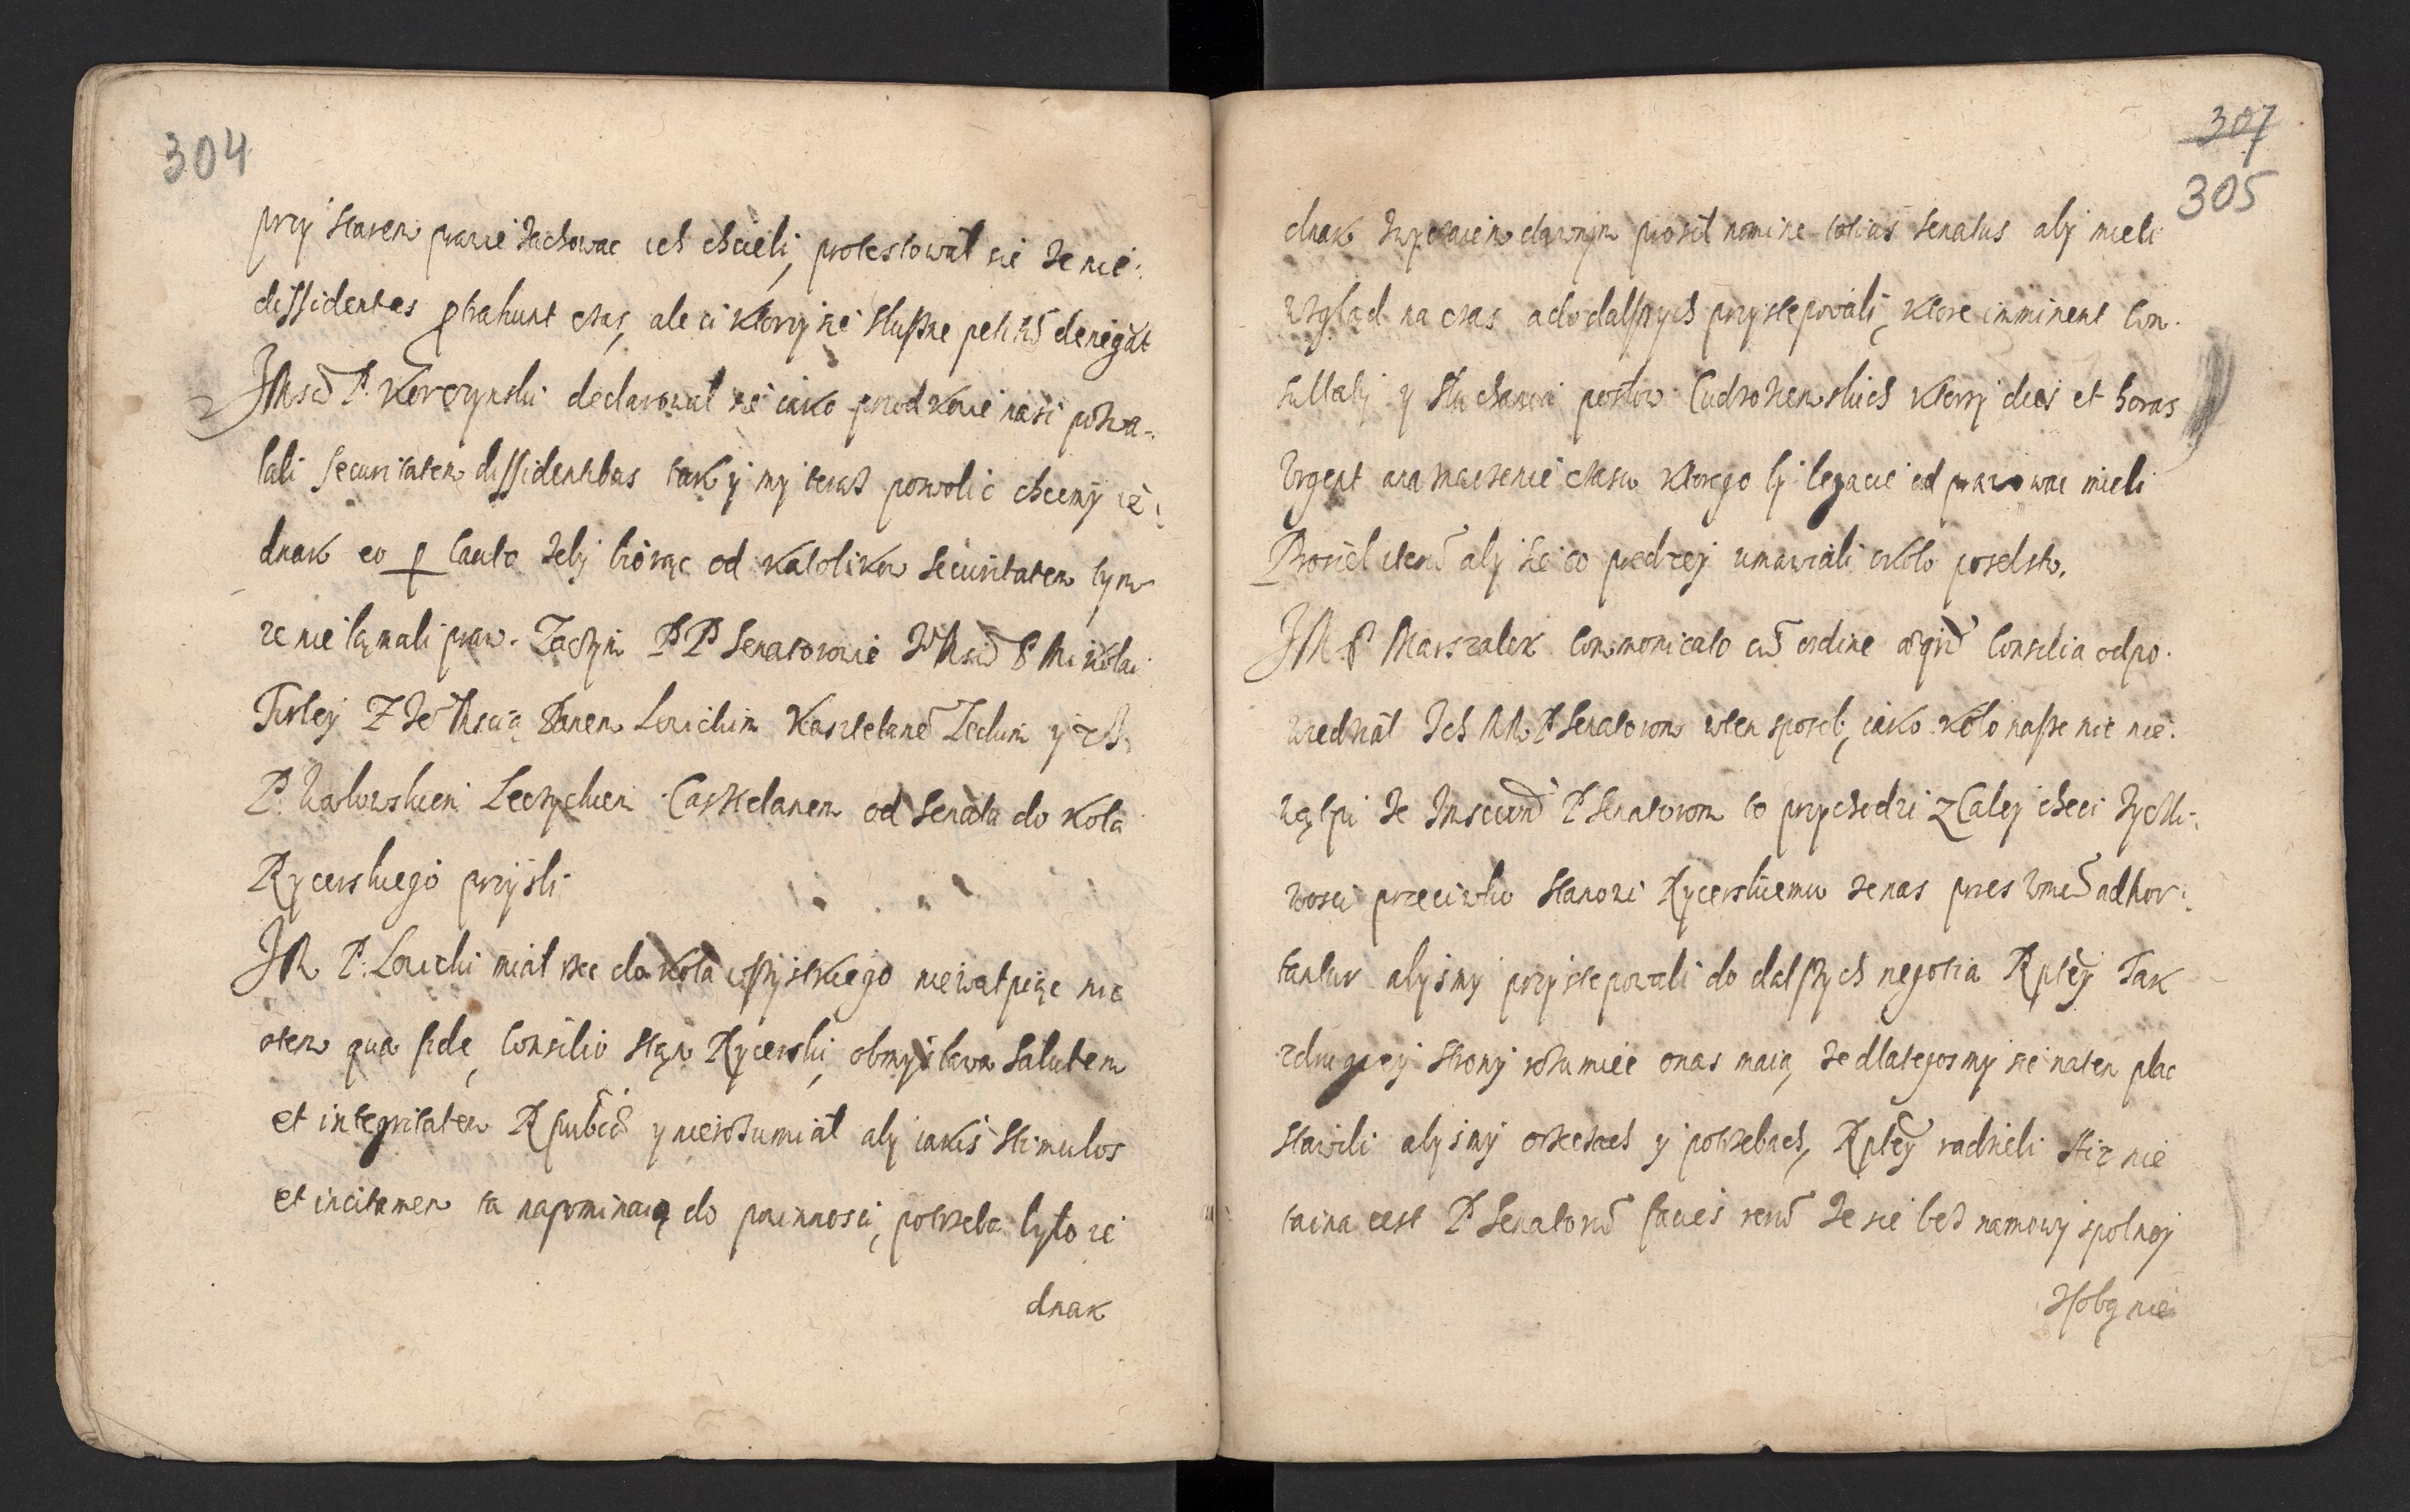 304
przy starem prawie zachowac ich chcieli, protestował sie ze nie
dissidentes ptrahunt czas, ale ci ktorzy ich słuszne denegāt
JMsc̄ P. Korczynski declarował sie iako przodkowie nasi pozwa-
lali securitatem dissidentibus tak y my teraz pozwolic chcemy ie-
dnak eo p cauto zeby biorąc od katolikow securitatem tym
ze nie łamali praw. Zaczym PP Senatorowie P Mikołai
Firley Z Janem Kasztelanē y
P. Leczyckiem Casztelanem od senatu do koła
Rycerskiego przyśli
JM P. Łowicki miał rzec do koła wszystkiego niewątpiąc nic
otem qua fide, consilio stan Rycerski, obmysława salutem
et integritatem Rpubcæ y nierozumiał aby iakis stimulos
et incitamen ta napominaią do powinnosci, potrzeba było ie
dnak
307
305
dnak zwyczaiem dawnym prosił nomine totius senatus aby mieli
wzgląd na czas a do dalszych przystępowali, ktore imminent con-
sultaty y słuchania posłow Cudzoziemskich ktorzy dies et horas
urgent czasu ktorego ty legacie odprawowac mieli
Prosieł iterū aby sie co prędzey umawiali około poselstw.
JM. P Marszałek Commonicato cū ordine Consilia odpo-
wiedział Ich MM. P Senatorom wten sposob, iako koło nasze nic nie-
wątpi ze P Senatorom to przychodzi z Całey checi zyczli-
wosci przeciwko stanowi Rycerskiemu ze nas przes adhor-
tantur abysmy przystępowali do dalszych negotia Rptey Tak
zdrugiey strony rozumiec onas maią, ze dlategosmy sie naten plac
stawili abysmy orzeczach y potrzebach, Rptey radzieli nie
taina iest P Senatorū ze sie bez namowy spolney
zsobą nie